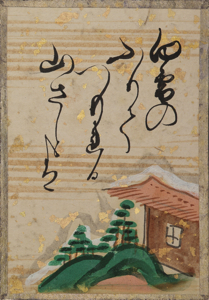 白雪の
ふりて
つもれる
山さとは